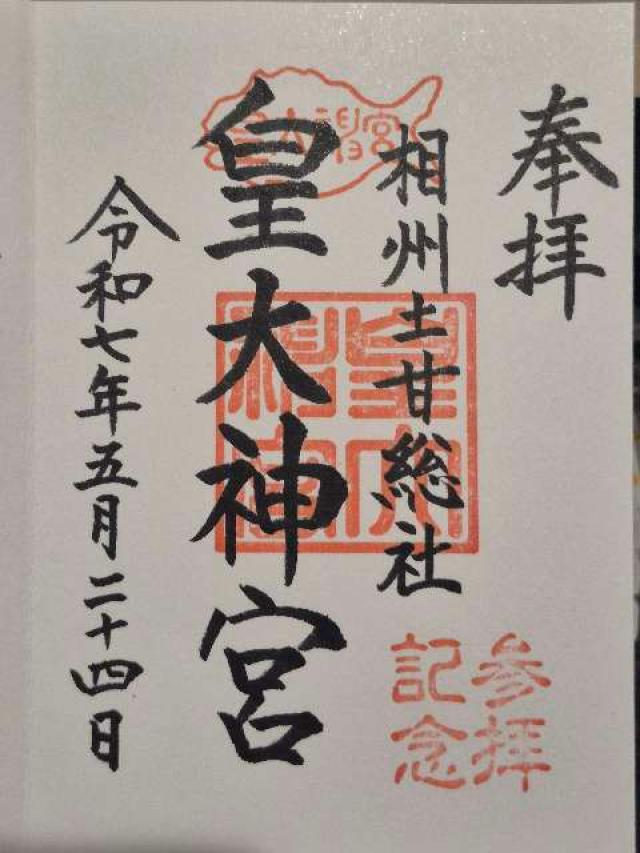 奉拝
相州土甘総社
皇大神宮
令和七年五月二十四日
皇大神宮
皇大神宮
参拝
記念